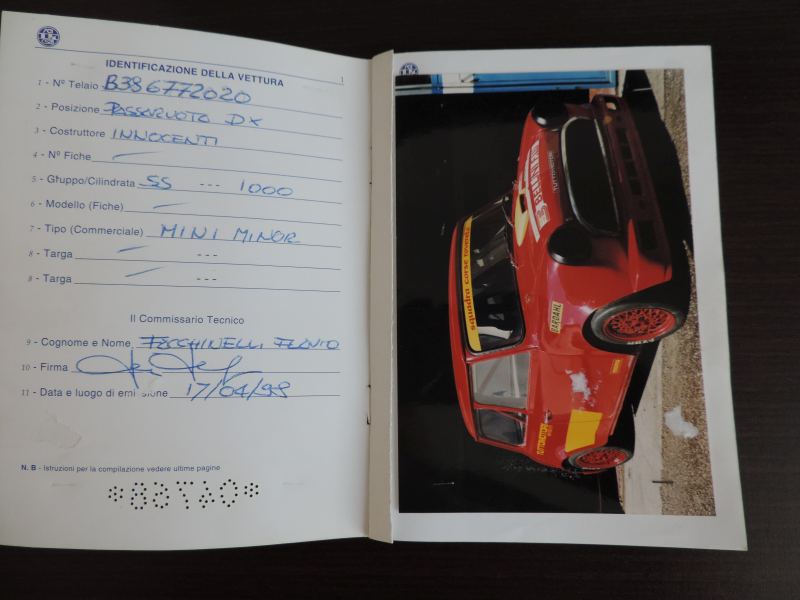 IDENTIFICAZIONE DELLA VETTURA
1
1 - N° Telaio B38677 2020
2 - Posizione PASSARUOTA DX
3 - Costruttore INNOCENTI
4 - N° Fiche —
5 - Gruppo/Cilindrata SS --- 1000
6 - Modello (Fiche) —
7 - Tipo (Commerciale) MINI MINOR
8 - Targa — ---
8 - Targa — ---
Il Commissario Tecnico
9 - Cognome e Nome
10 - Firma
11 - Data e luogo di emissione 17/04/98
N. B - Istruzioni per la compilazione vedere ultime pagine
squadra corse
BARDAHL